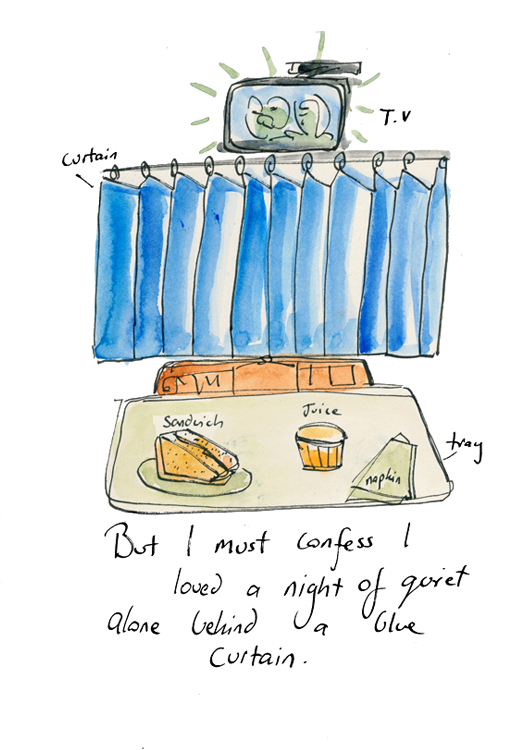 T.V
Curtain
Sandwich
Juice
tray
napkin
But I must confess I
loved a night of quiet
alone behind a blue
Curtain.